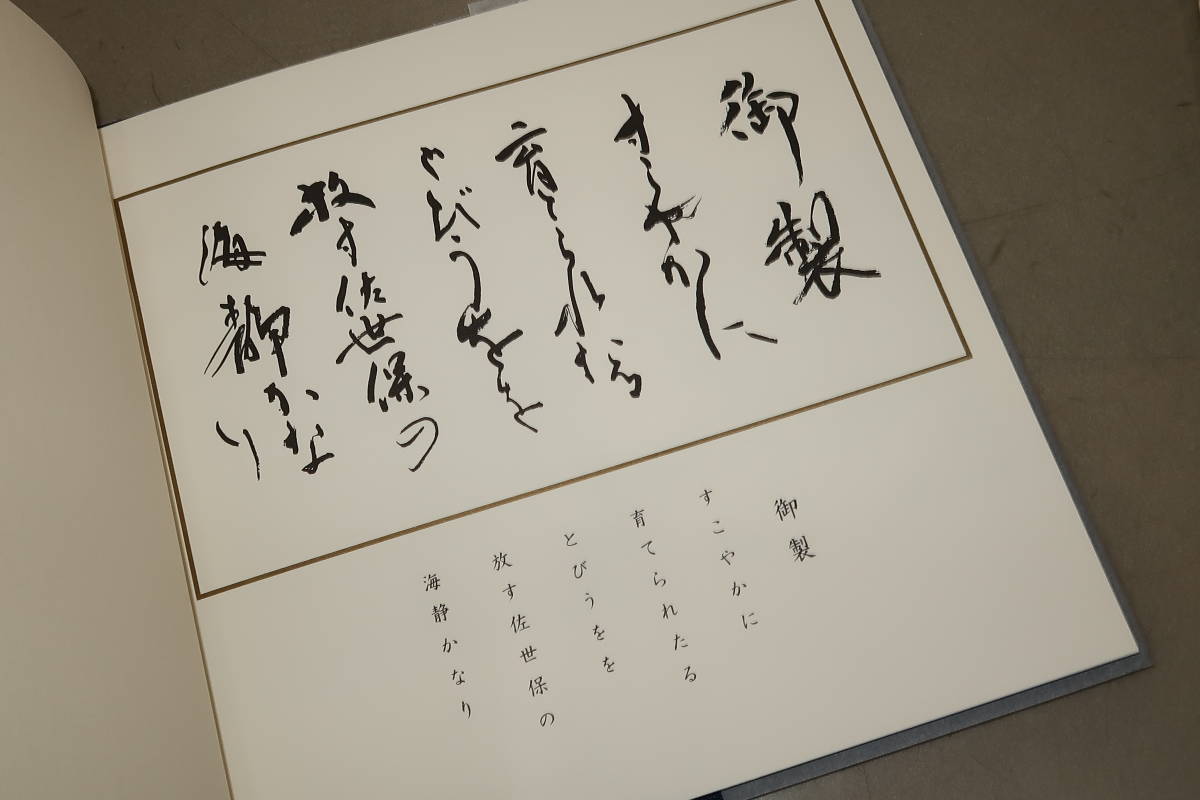 御製
すこやかに
育てられたる
とびうをを
放す佐世保の
海静かなり
御製
すこやかに
育てられたる
とびうをを
放す佐世保の
海静かなり